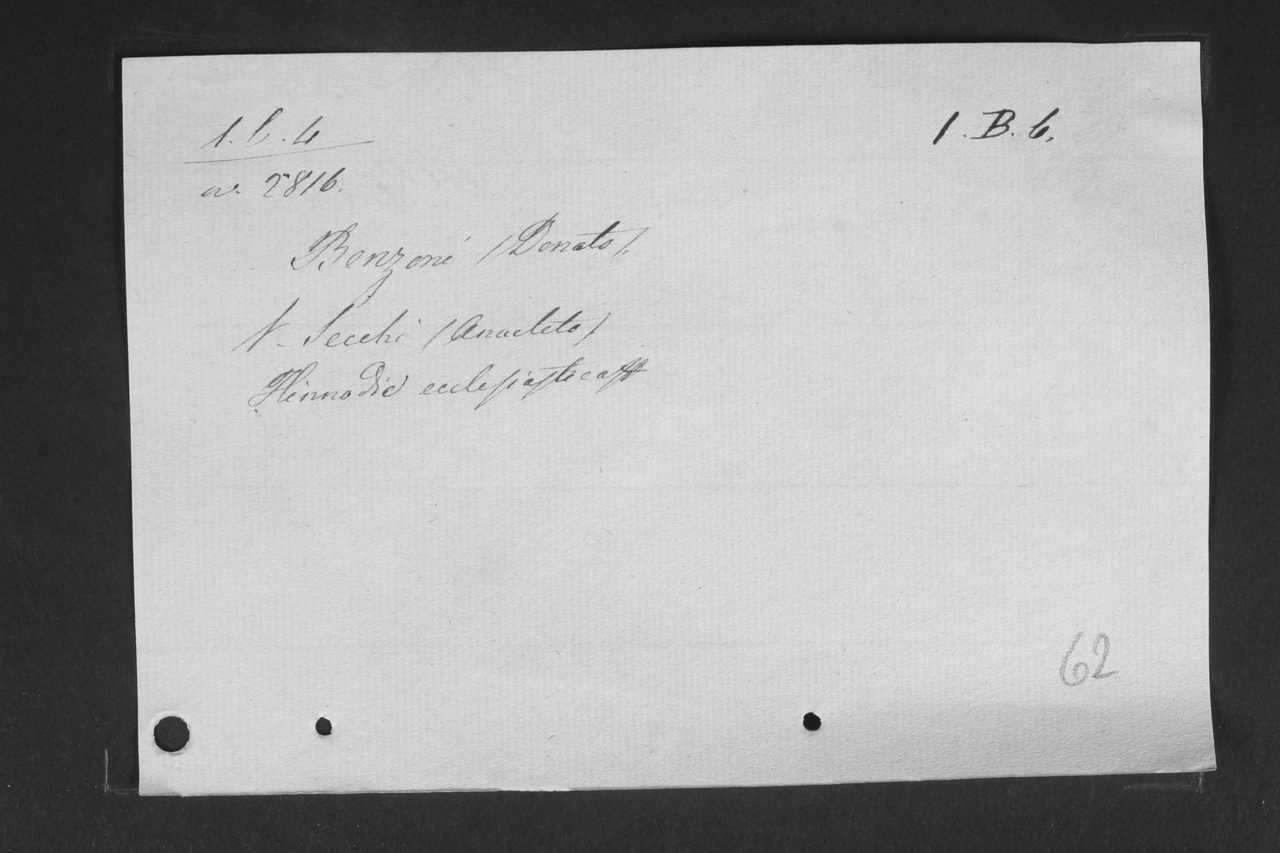 1. b. 4
1. B. 6.
w. 2816.
Benzoni (Donato).
V. Secchi (Anacleto)
Hinnodie ecclesiastica
62